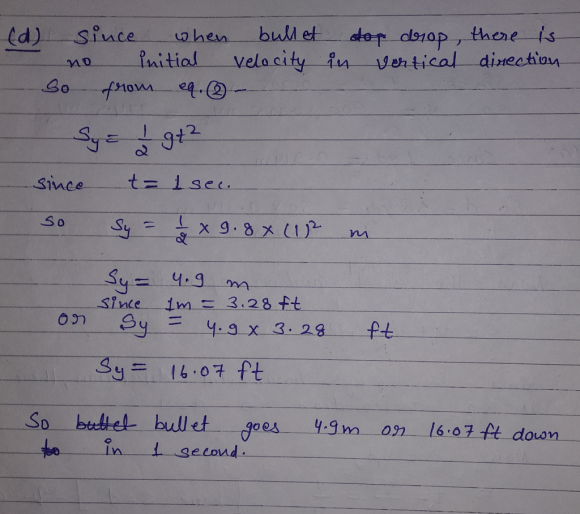 (d) Since when bullet dop drop, there is
no initial velocity in vertical direction
So from eq. ② -
Sy = 1/2 gt²
since t = 1 sec.
so Sy = 1/2 × 9.8 × (1)² m
Sy = 4.9 m
since 1m = 3.28 ft
or Sy = 4.9 × 3.28 ft
Sy = 16.07 ft
So buttet bullet goes 4.9m or 16.07 ft down
to in 1 second.